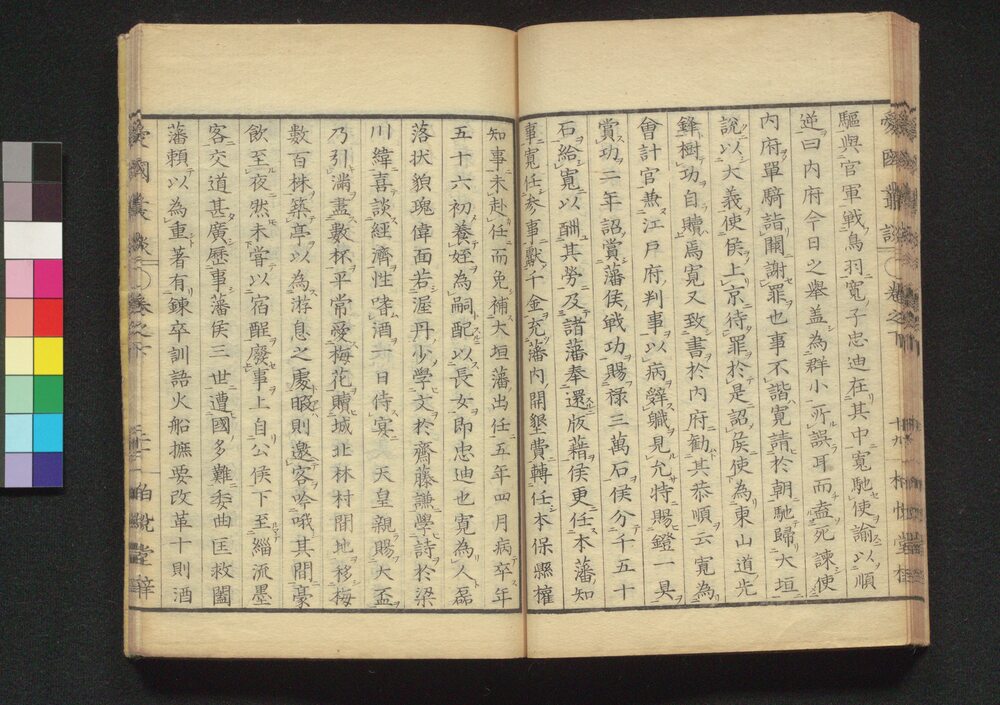 驅與官軍戰鳥羽寬子忠迪在其中寬馳使諭以順
逆曰内府今日之舉盖為群小所誤耳而盍死諫使
内府單騎詣闕謝罪也事不諧寬請於朝馳歸大垣
說以大義使侯上京待罪於是詔侯使為東山道先
鋒樹功自贖焉寬又致書於内府勸其恭順云寬為
會計官兼江戶府判事以病辭職見允特賜鐙一具
賞功二年詔賞藩侯戰功賜祿三萬石侯分千五十
石給寬以酬其勞及諸藩奉還版藉侯更任本藩知
事寬任参事獻千金充藩内開墾費轉任本保縣權
知事未赴任而免補大垣藩出任五年四月病卒年
五十六初養姪為嗣配以長女即忠迪也寬為人磊
落状貌瑰偉面若渥丹少學文於齋藤謙學詩於梁
川緯喜談經濟性嗜酒一日侍宴 天皇親賜大盃
乃引滿盡數杯平常愛梅花贖城北林村閒地移梅
數百株築亭以為游息之處暇則邀客吟哦其間豪
飲至夜然未嘗以宿酲廢事上自公侯下至緇流墨
客交道甚廣歷事藩侯三世遭國多難委曲匡救闔
藩賴以為重著有鍊卒訓語火船摭要改革十則酒